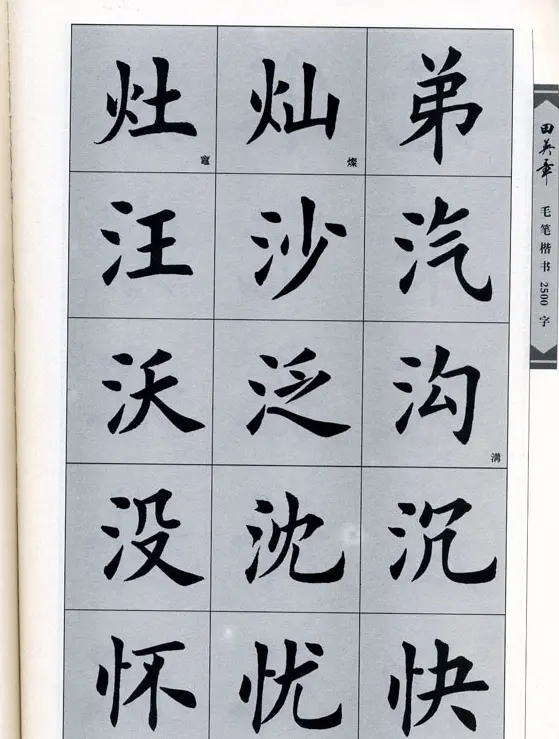 灶 灿 弟
竈 燦
汪 沙 汽
沃 泛 沟
溝
没 沈 沉
怀 忧 快
田英章 毛笔楷书2500字